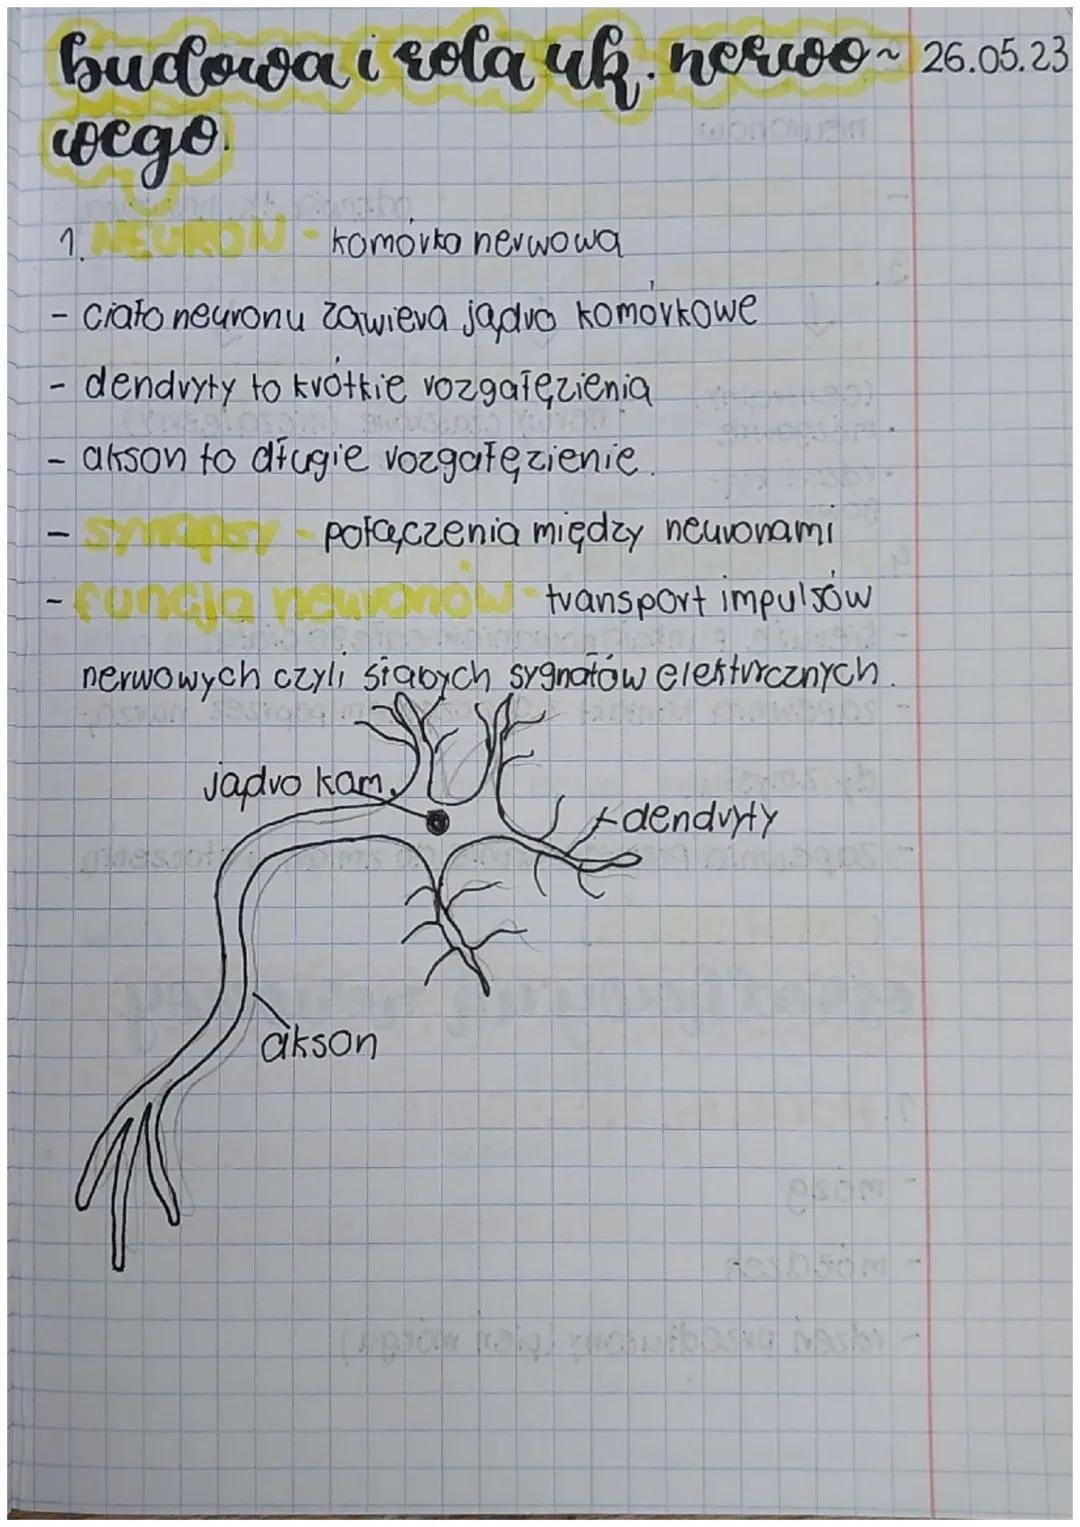 budowa i rola uk. nerwo~ 26.05.23
wego.
1. NEURON - komórka nerwowa
- ciało neuronu zawiera jądro komórkowe
- dendryty to krótkie rozgałęzienia
- akson to długie rozgałęzienie.
- synapsy - połączenia między neuronami
- funcja neuronów - transport impulsów
nerwowych czyli słabych sygnałów elektrycznych.
jądro kom.
dendryty
akson